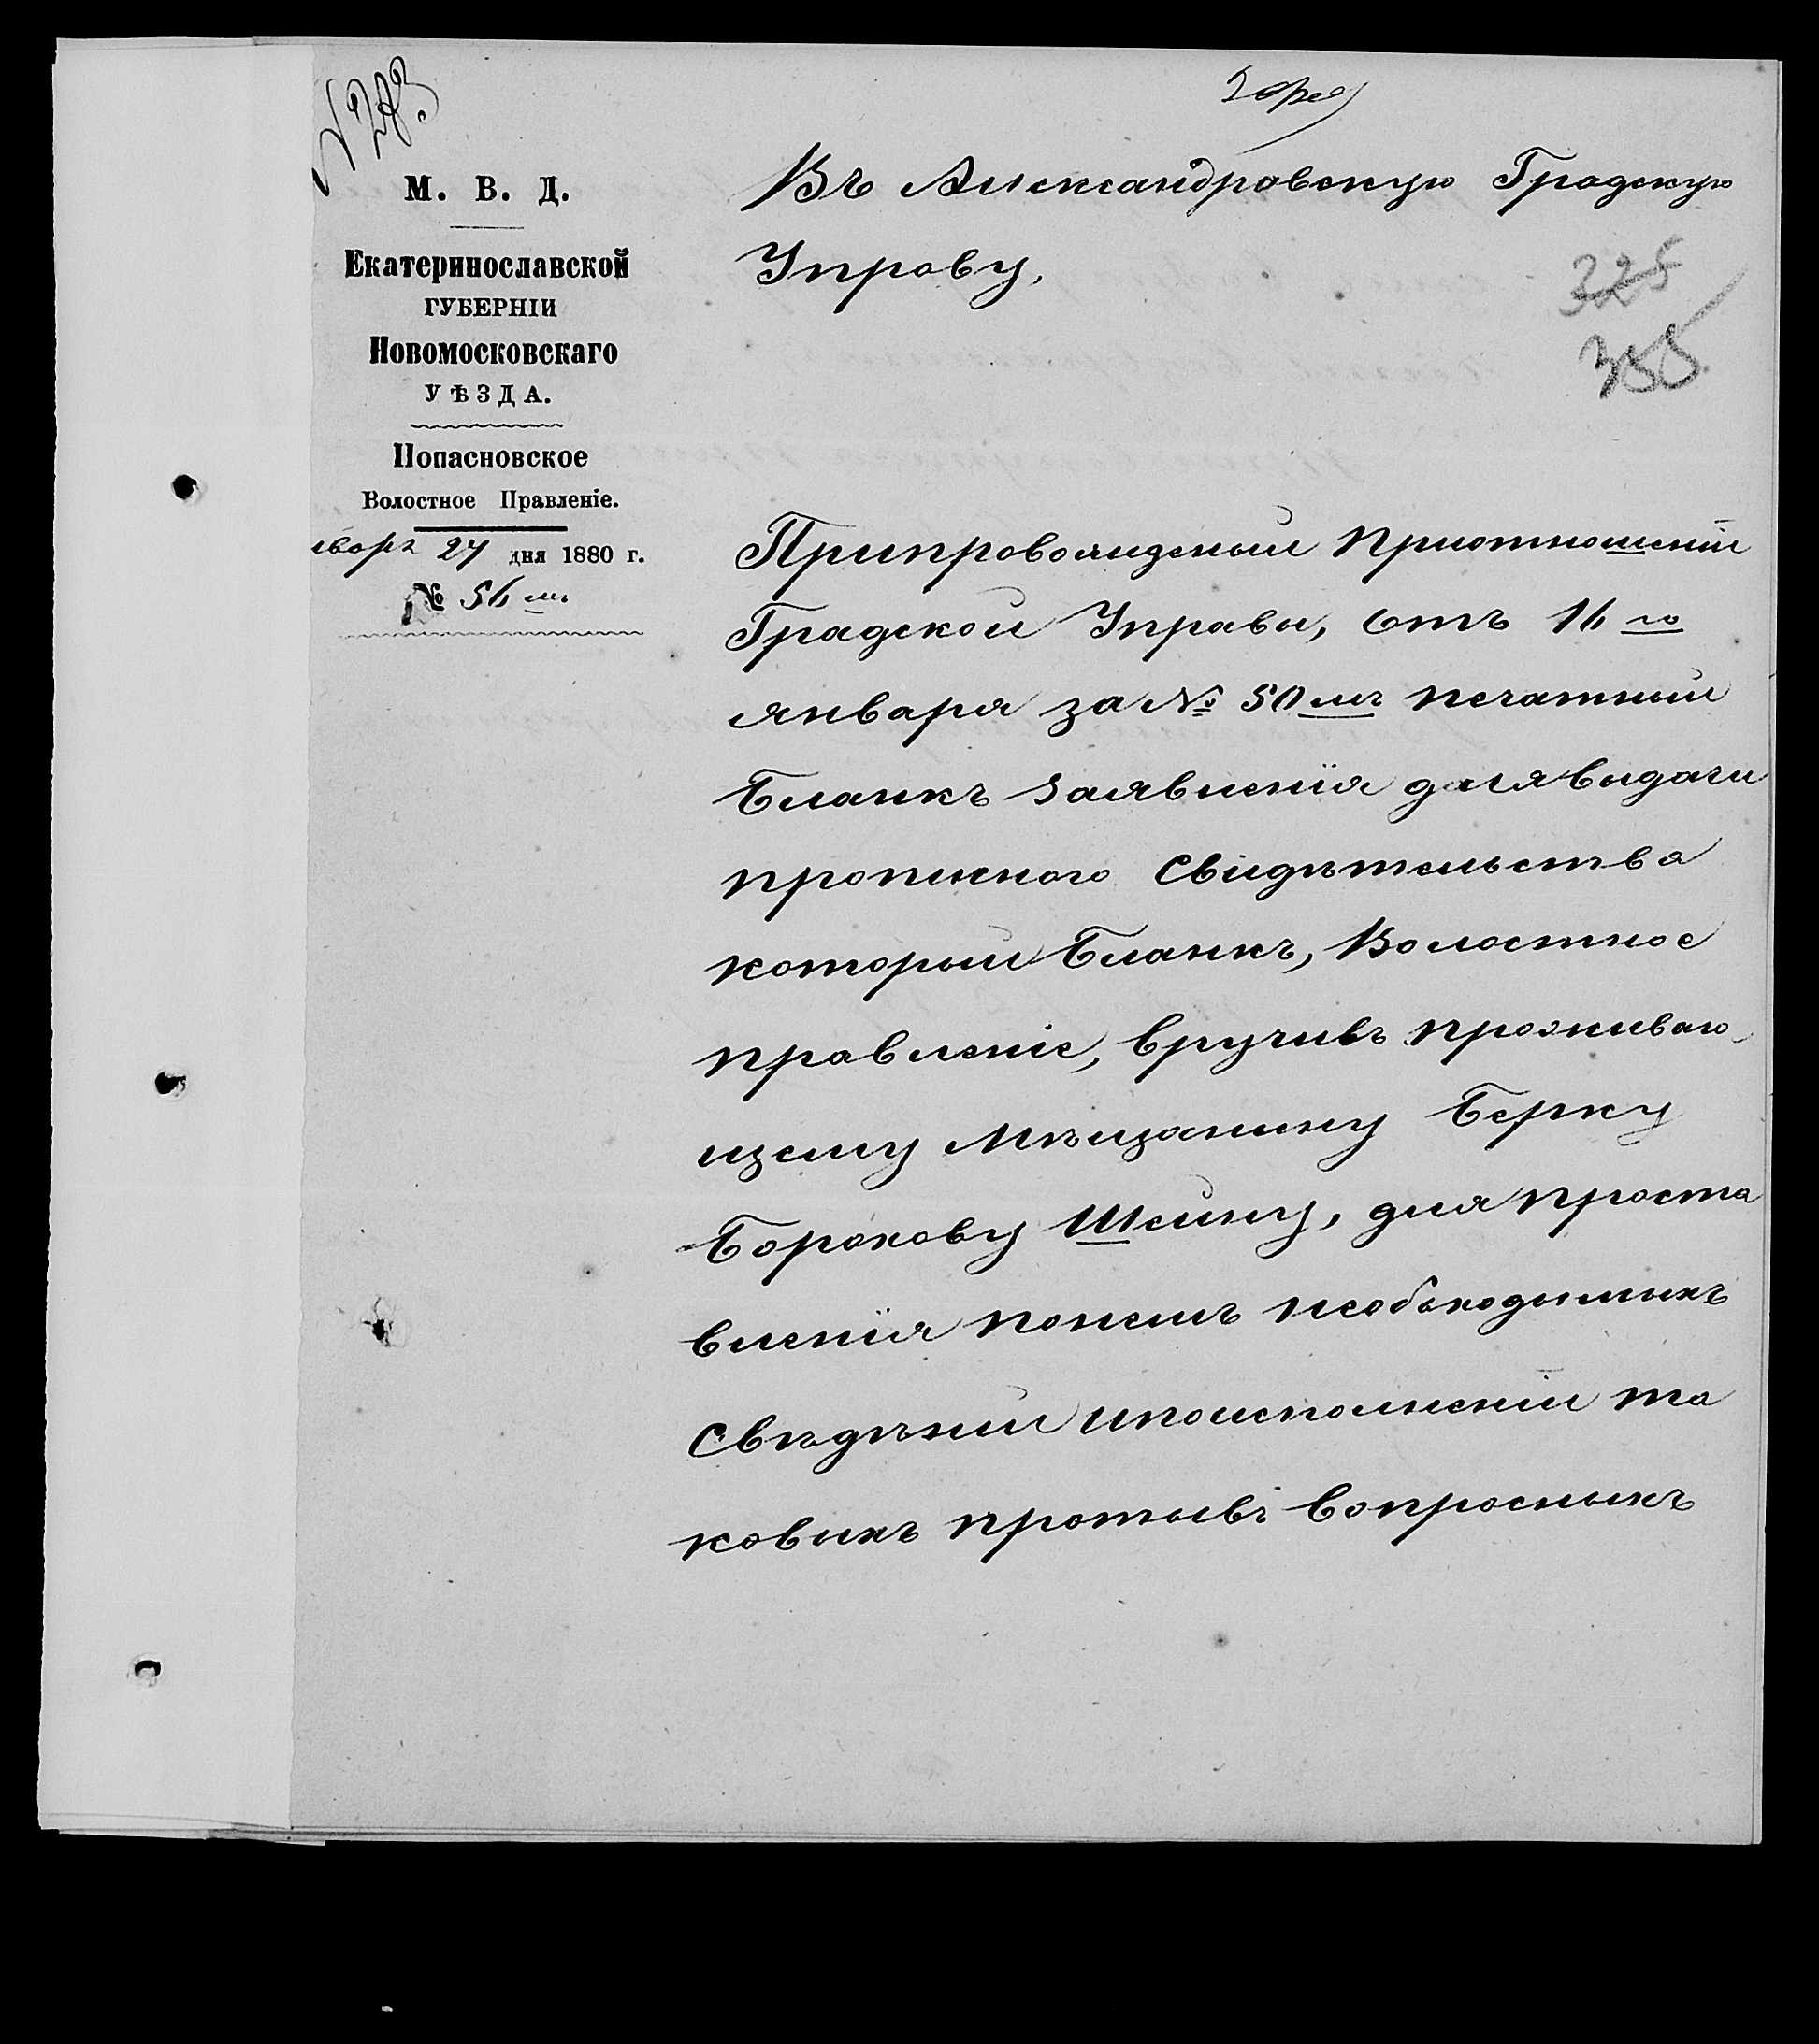 № 283
М. В. Д.
Екатеринославской
ГУБЕРНІИ
Новомосковскаго
УѢЗДА.
Попасновское
Волостное Правленіе.
нваря 27 дня 1880 г.
№ 56
Въ Александровскую Градскую
Управу,
325
355
Припровожденый приотношеніи
Градской Управы, отъ 16 го
января за № 50 мъ печатный
бланкъ заявленія для выдачи
прописного свидѣтельства
который бланкъ, Волостное
правленіе, вручивъ проживаю
щему мѣщанину Берку
Борохову Шейну, для проста
вленія понемъ необоходимыхъ
свѣдѣній ипоисполненіи та
ковыхъ противъ вопросныхъ